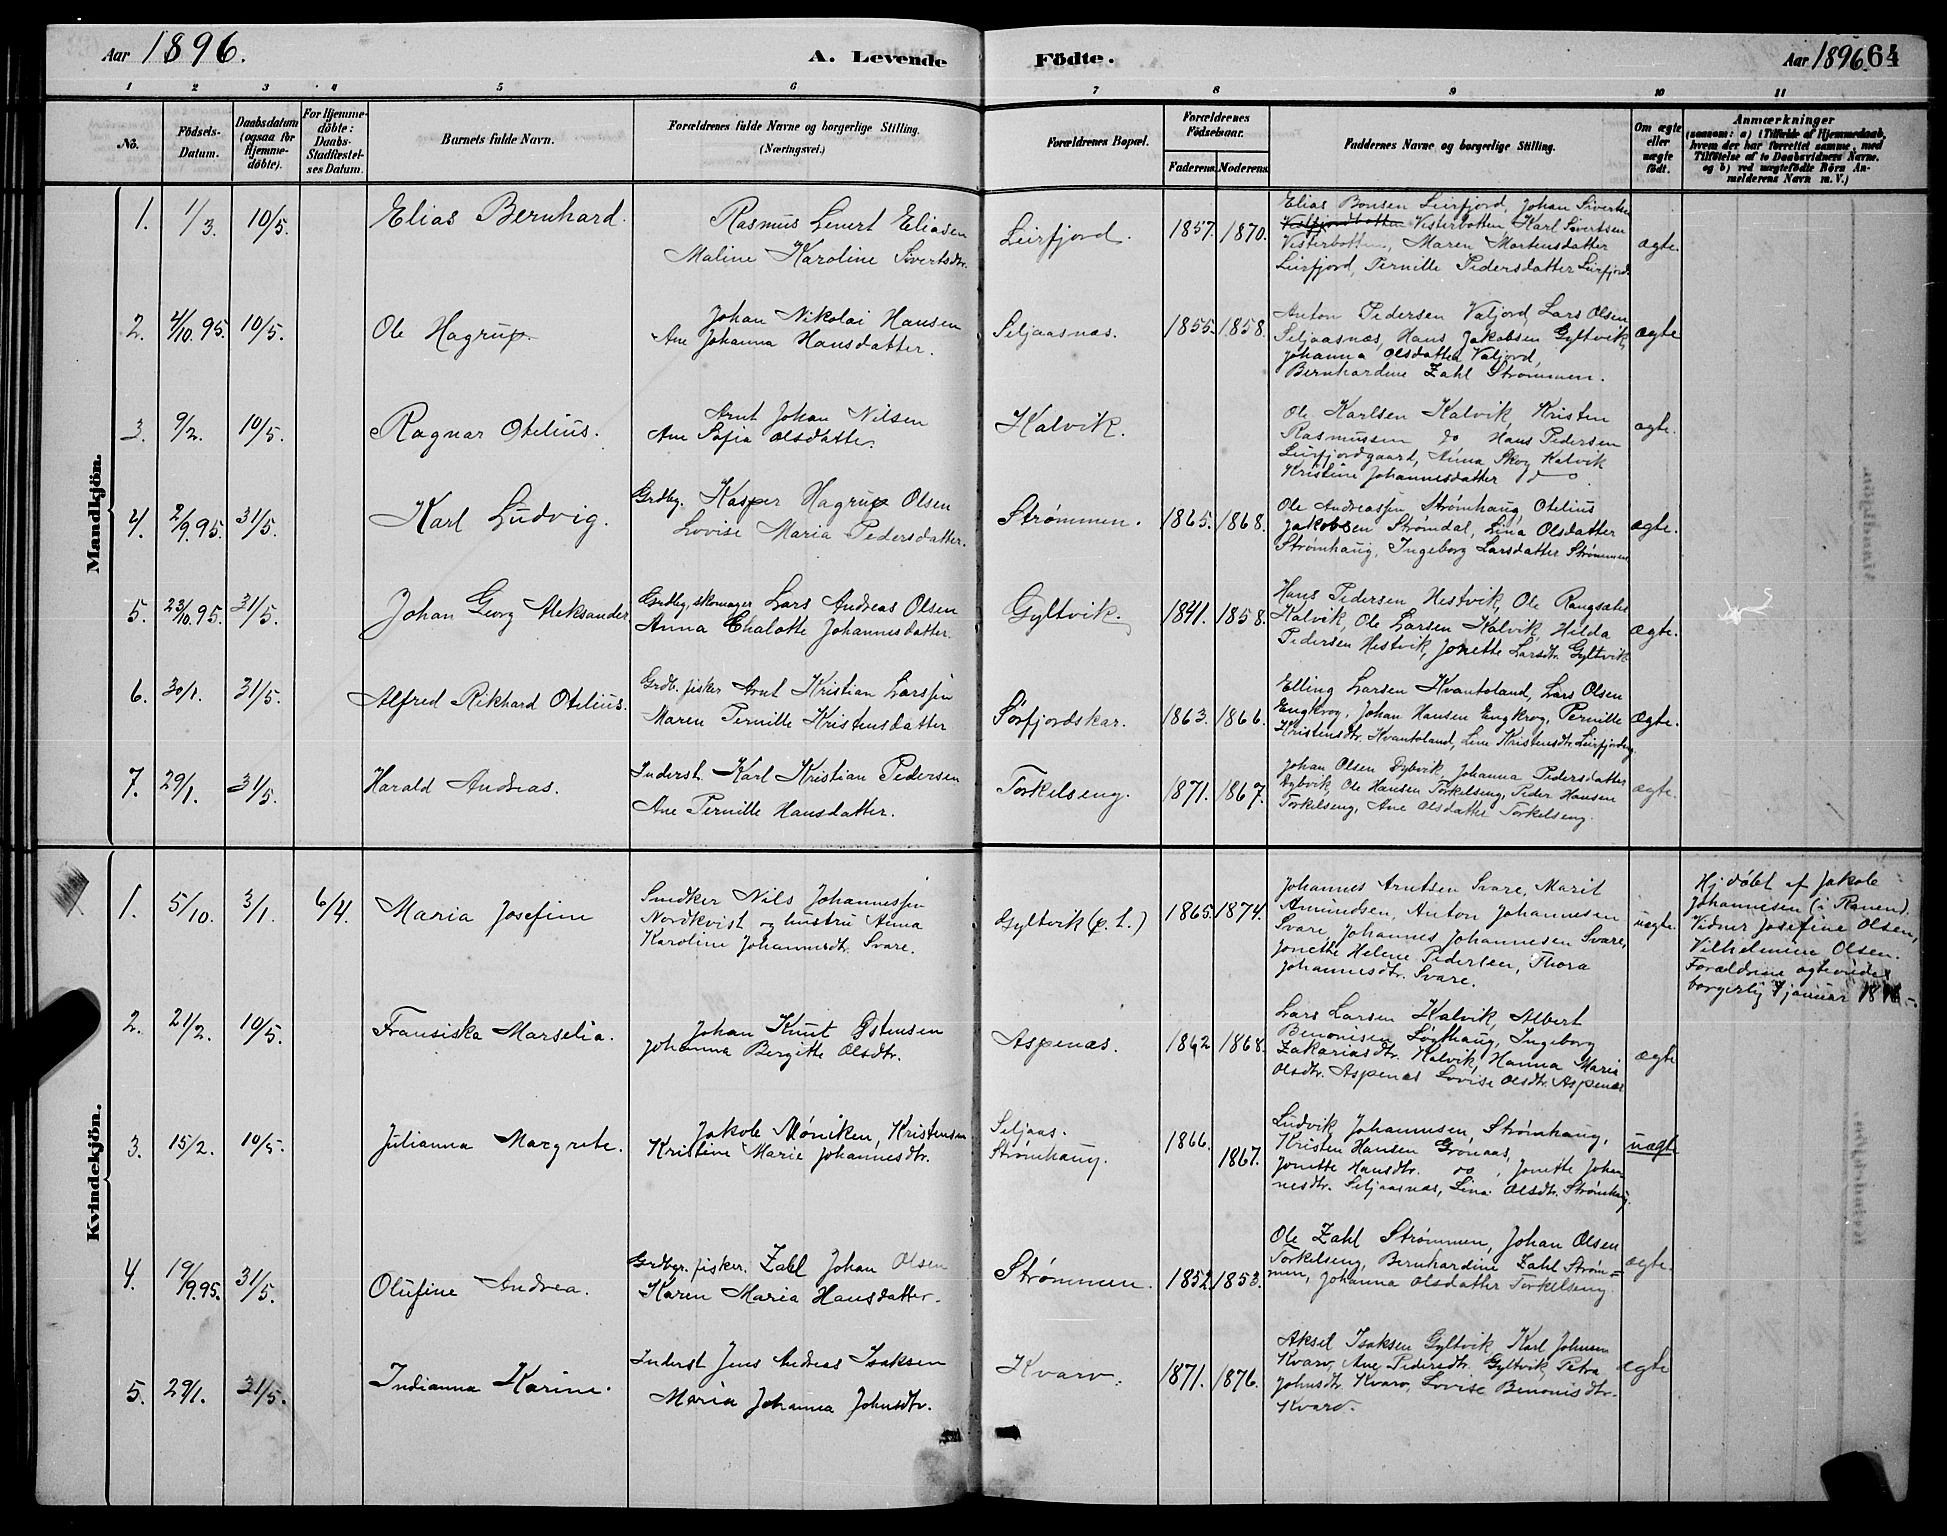 Aar 1896.
A. Levende
Födte.
Aar 1896. 64
1 2 3 4 5 6 7 8 9 10 11
No.
Födsels-
Datum.
Daabsdatum
(ogsaa for
Hjemme-
döbte).
For Hjemme-
döbte:
Daabs-
Stadfæstel-
ses Datum.
Barnets fulde Navn.
Forældrenes fulde Navne og borgerlige Stilling.
(Næringsvei.)
Forældrenes Bopæl.
Forældrenes
Födselsaar.
Faderens. Moderens.
Faddernes Navne og borgerlige Stilling.
Om ægte
eller
uægte
födt.
Anmærkninger
(saasom: a) i Tilfælde af Hjemmedaab,
hvem der har forrettet samme, med
Tilföielse af to Daabsvidners Navne,
og b) ved uægtefödte Börn An-
melderens Navn m. V.)
Mandkjön.
1. 1/3. 10/5. Elias Bernhard.
Rasmus Lenert Eliasen
Maline Karoline Sivertsdtr.
Leirfjord. 1857. 1870.
Elias Bonsen Leirfjord, Johan Sivertsen
Vesterbotten, Karl Sivertsen
Vesterbotten, Maren Mortensdatter
Leirfjord, Pernille Pedersdatter Leirfjord.
ægte.
2. 4/10.95. 10/5. Ole Hagrup.
Johan Nikolai Hansen
Ane Johanna Hansdatter.
Seljaasnæs. 1855. 1858.
Anton Pedersen Valjord, Lars Olsen
Seljaasnæs, Hans Jakobsen Gyltvik,
Johanna Olsdatter Valjord,
Bernhardine Zahl Strømmen.
ægte
3. 9/2. 10/5. Ragnar Otelius.
Arnt Johan Nilsen
Ane Sofia Olsdatter.
Kalvik.
Ole Karlsen Kalvik, Kristen
Rasmussen do Hans Pedersen
Leirfjordgaard, Anna Skog Kalvik
Kristine Johannesdatter do.
ægte.
4. 2/9.95. 31/5. Karl Ludvig.
Grdbg. Kasper Hagrup Olsen
Lovise Maria Pedersdatter.
Strømmen. 1865. 1868.
Ole Andreassen Strømhaug, Otelius
Jakobsen Strømdal, Lina Olsdatter
Strømhaug, Ingeborg Larsdatter Strømmen
ægte.
5. 23/10.95. 31/5. Johan Georg Aleksander
Grdbg, skomager Lars Andreas Olsen
Anna Chalotte Johannesdatter.
Gyltvik. 1841. 1858.
Hans Pedersen Hestvik, Ole Rangsæter
Kalvik, Ole Larsen Kalvik, Hilda
Pedersen Hestvik, Jonette Larsdtr. Gyltvik
ægte.
6. 30/1. 31/5. Alfred Rikhard Otelius.
Grdb. fisker Arnt Kristian Larssen
Maren Pernille Kristensdatter
Sørfjordskar. 1863. 1866.
Elling Larsen Kvantoland, Lars Olsen
Engkrog, Johan Hansen Engkrog, Pernille
Kristensdtr. Kvantoland, Line Kristensdtr. Leirfjordg.
ægte.
7. 29/1. 31/5. Harald Andreas.
Inderst. Karl Kristian Pedersen
Ane Pernille Hansdatter.
Torkelseng. 1871. 1867.
Johan Olsen Dybvik, Johanna Pedersdatter
Dybvik, Ole Hansen Torkelseng, Peder Hansen
Torkelseng, Ane Olsdatter Torkelseng.
ægte.
Kvindekjön.
1. 5/10. 3/1. 6/4. Maria Josefine
Snedker Nils Johannessen
Nordkvist og hustru Anna
Karoline Johannesdtr. Svare.
Gyltvik (p. t.) 1865. 1874.
Johannes Arntsen Svare, Marit
Amundsen, Anton Johannesen
Svare, Johannes Johannesen Svare,
Jonette Helene Pedersen, Thora
Johannesdtr. Svare.
uægte.
Hj. døbt af Jakob
Johannesen (i Ranen).
Vidner Josefine Olsen,
Vilhelmine Olsen.
Forældrene ægteviedes
borgerlig 7 januar
2. 21/2. 10/5. Fransiska Marselia.
Johan Knut Østensen
Johanna Bergitte Olsdtr.
Aspenæs. 1862 1868.
Lars Larsen Kalvik, Albert
Benonisen Lørthaug, Ingeborg
Zakariasdtr. Kalvik, Hanna Maria
Olsdtr. Aspenæs Lovise Olsdtr. Aspenæs
ægte
3. 15/2. 10/5. Julianna Margrete.
Jakob Møniken, Kristensen
Kristine Marie Johannesdtr.
Seljaas.
Strømhaug.
1866. 1867.
Ludvik Johannesen, Strømhaug,
Kristen Hansen Grønaas,
Jonette Hansdtr. do, Jonette Johan
nesdtr. Seljaasnæs, Lina Olsdtr. Strømhaug.
uægte
4. 19/9.95. 31/5. Olufine Andrea.
Grdbgr. fisker. Zahl Johan Olsen
Karen Maria Hansdatter.
Strømmen. 1852. 1853.
Ole Zahl Strømmen, Johan Olsen
Torkelseng, Bernhardine Zahl Strøm=
men, Johanna Olsdatter Torkelseng.
ægte.
5. 29/1. 31/5. Indianna Karine.
Inderst Jens Andreas Isaksen
Maria Johanna Johnsdtr.
Kvarv. 1871. 1876.
Aksel Isaksen Gyltvik, Karl Johnsen
Kvarv, Ane Pedersdtr. Gyltvik, Petra
Johnsdtr. Kvarv, Lovise Benonisdtr.
Kvarv.
ægte